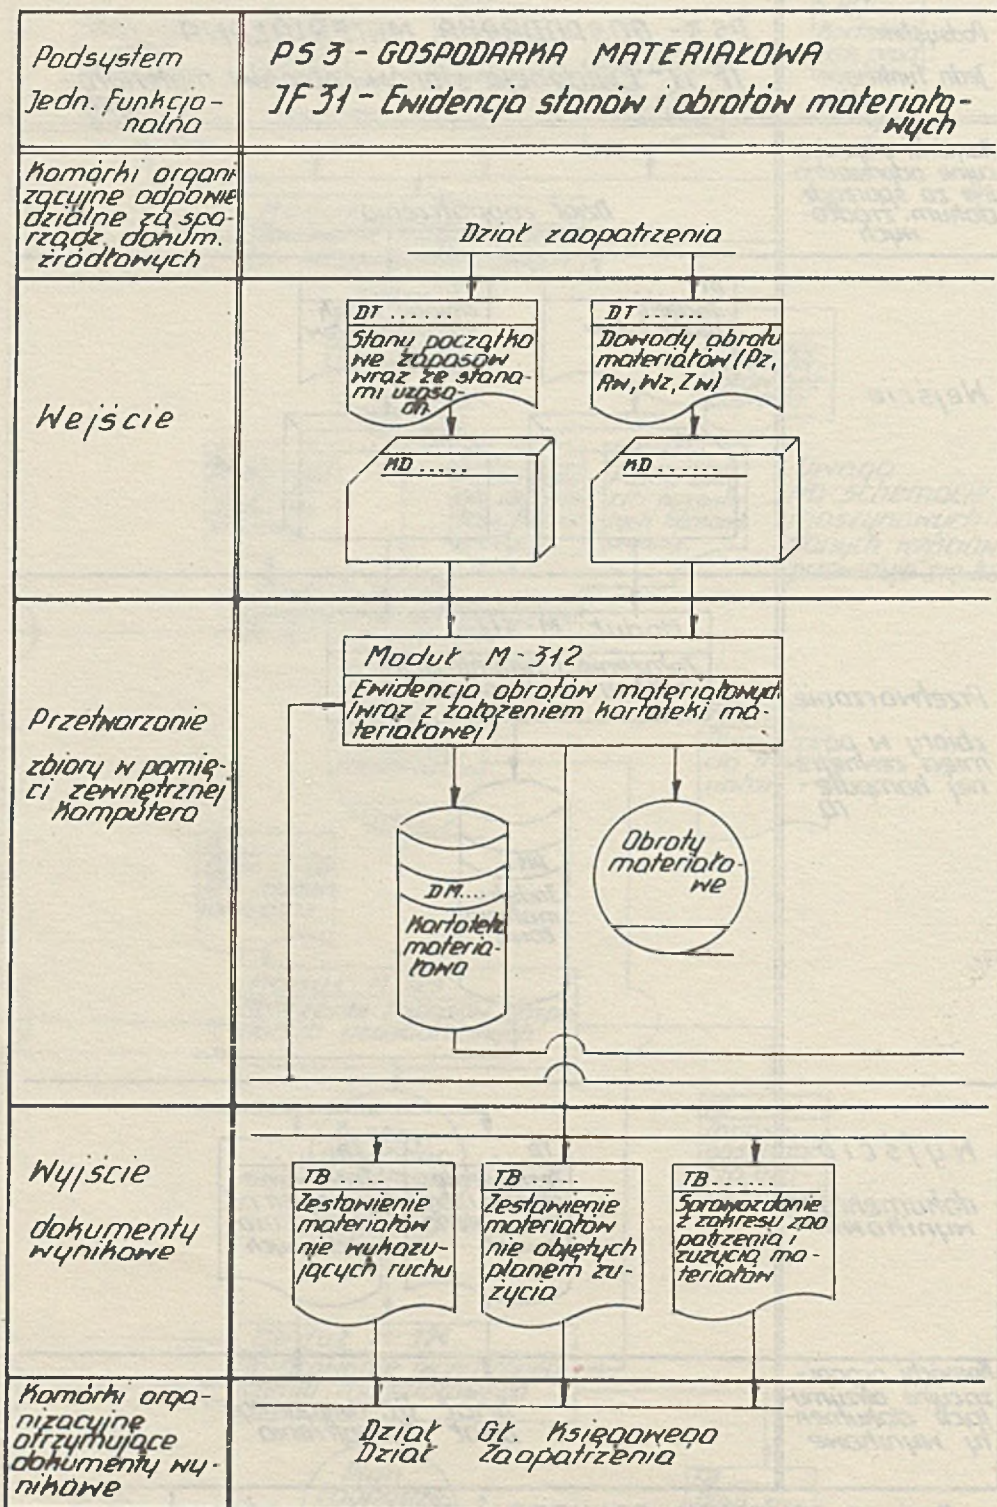 Podsystem
PS 3 - GOSPODARKA MATERIAŁOWA
Jedn. funkcjo-
nalna
JF 31 - Ewidencja stanów i obrotów materiało-
wych
Komórki organi
zacyjne odpowie
dzialne za spo-
rządz. dokum.
źródłowych
Dział zaopatrzenia
Wejście
DT ......
Stany początko
we zapasów
wraz ze stana-
mi uzasa-
dn.
DT ......
Dowody obrotu
materiałów (Pz,
Rw, Wz, Zw)
KD .....
KD ......
Przetwarzanie
zbiory w pamię-
ci zewnętrznej
komputera
Moduł M-312
Ewidencja obrotów materiałowych
(wraz z założeniem kartoteki ma-
teriałowej)
DM....
Kartoteka
materia-
łowa
Obroty
materiało-
we
Wyjście
dokumenty
wynikowe
TB......
Zestawienie
materiałów
nie wykazu-
jących ruchu
TB......
Zestawienie
materiałów
nie objętych
planem zu-
życia
TB......
Sprawozdanie
z zakresu zao
patrzenia i
zużycia ma-
teriałów
Komórki orga-
nizacyjne
otrzymujące
dokumenty wy-
nikowe
Dział Gł. Księgowego
Dział Zaopatrzenia